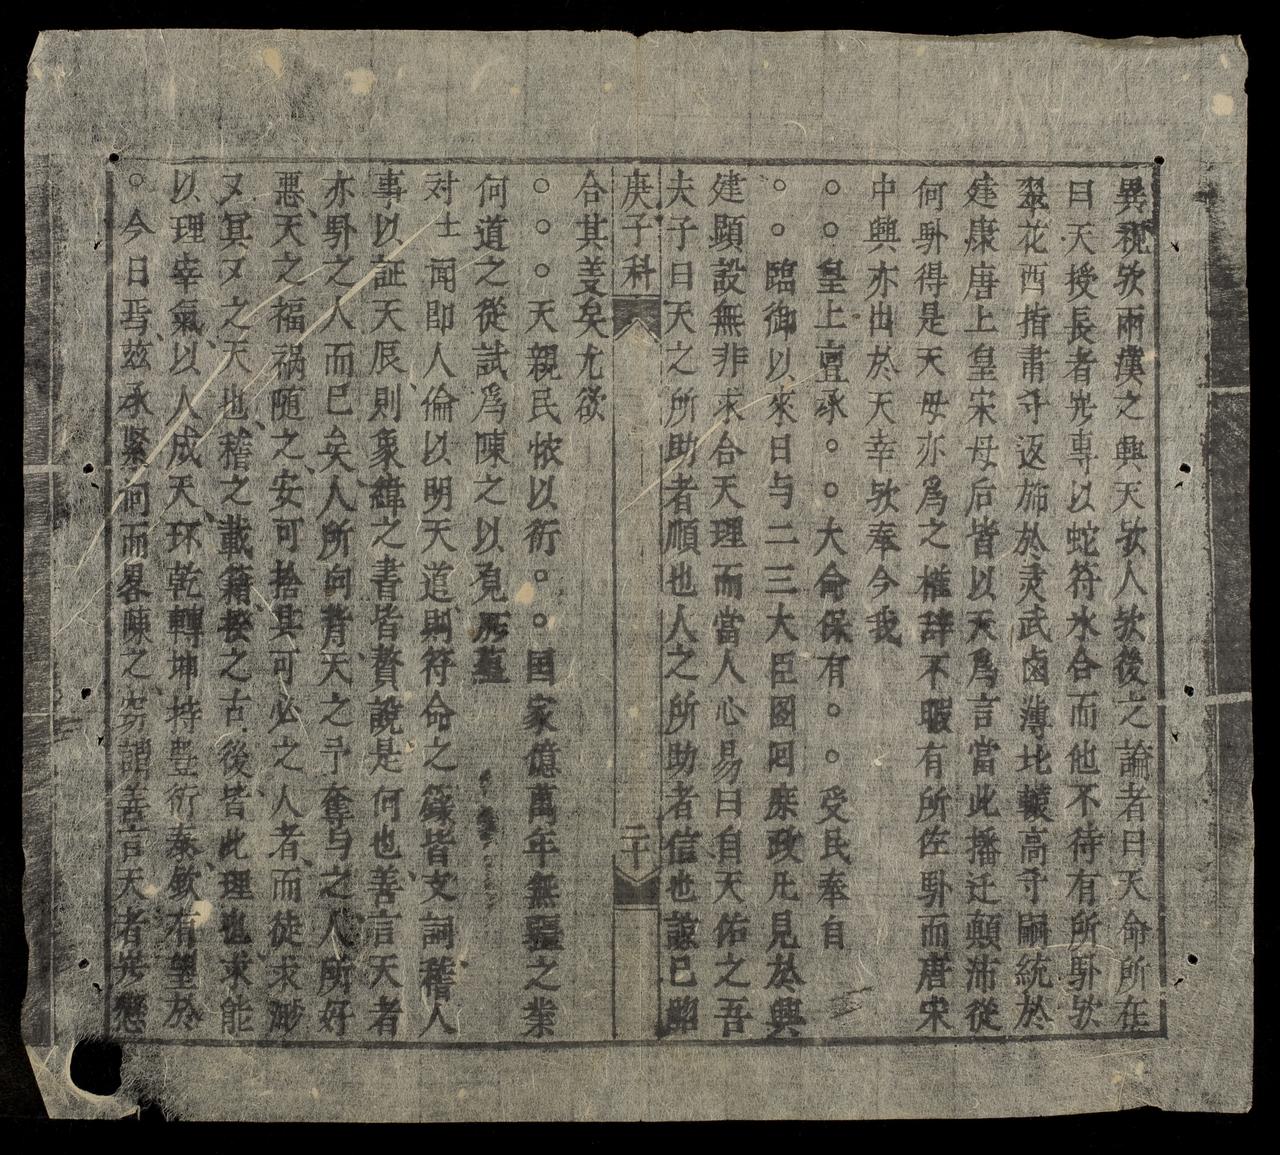 異視欤兩漢之興天欤人欤後之論者曰天命所在
曰天授長者岂專以蛇符水合而他不待有所馭欤
翠花西指書于返斾於灵武鹵薄北轅高于嗣統於
建康唐上皇宋母后皆以天爲言當此播迁顛沛從
何馭得是天毋亦爲之權辞不暇有所佐馭而唐宋
中興亦出於天幸欤奉今我
○○皇上亶承○○大命保有○○受民奉自
○○臨御以來日与二三大臣图回庶政凡見於興
建顕設無非求合天理而當人心易曰自天佑之吾
夫子曰天之所助者順也人之所助者信也諒已脗
庚子科
二十
合其妄矣尤欲
○○○天親民懷以衍○○国家億萬年無疆之業
何道之從試爲陳之以覔所蘊
対士聞即人倫以明天道則符命之籙皆文詞稽人
事以証天辰則象緯之書皆贅說是何也善言天者
亦馭之人而已矣人所向背天之予奪与之人所好
惡天之福祸随之安可捨其可必之人者而徒求渺
又冥又之天也稽之載籍按之古後皆此理也求能
以理宰氣以人成天环乾轉坤持豊衍泰欽有望於
○今日焉茲承緊问而畧陳之窃謂善言天者岂懸